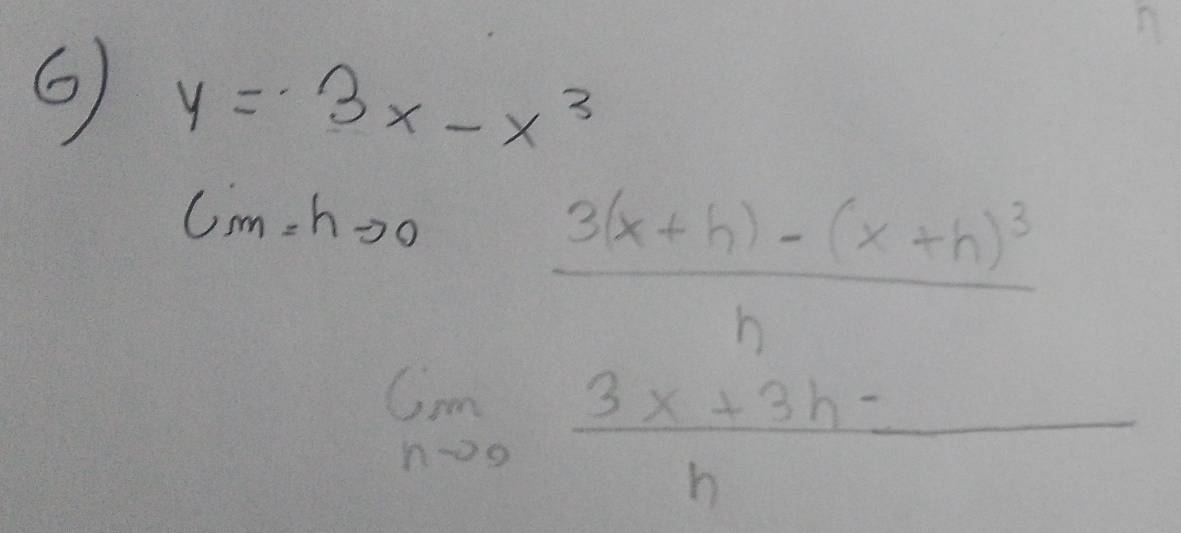 6) y = 3x - x³
Lim = h→0 3(x + h) - (x + h)³
h
Lim 3x + 3h -
h→0 h